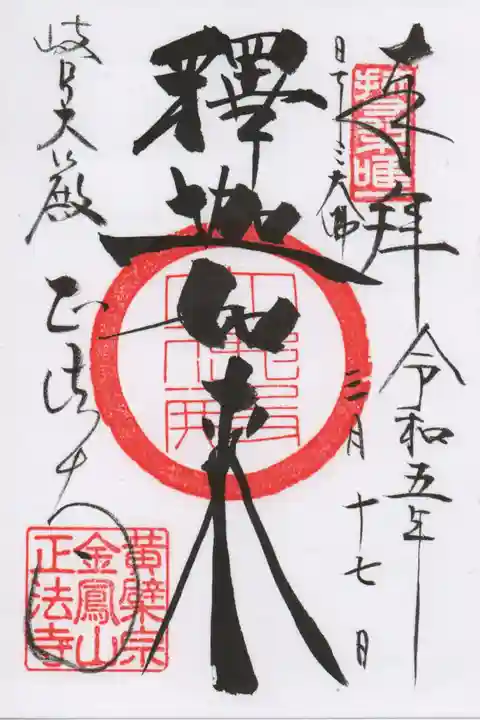 奉拝
日本三大佛
令和五年
三月十七日
釋迦如来
岐阜大仏殿
正法寺
黄檗宗
金鳳山
正法寺